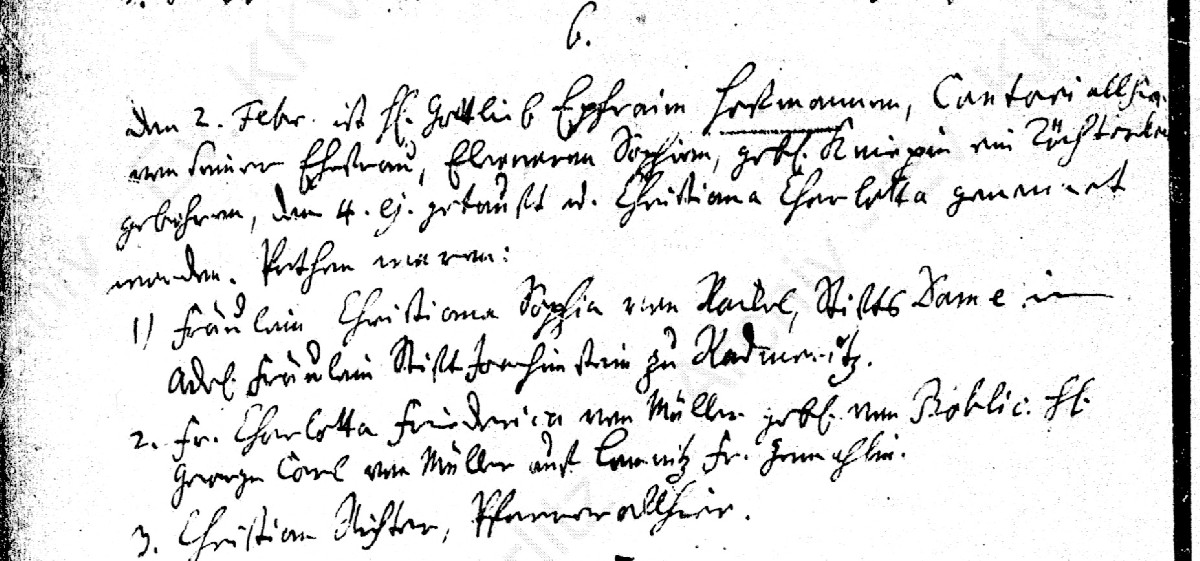 6.
den 2. Febr. ist H. Gottlieb Ephraim Hoffmannen, Cantori allhier
von seiner Ehefrau, Eleonoren Sophien, gebl. Kniepin ein Töchterlein
gebohren, den 4. ej. getauft u. Christiana Charlotta genennet
worden. Pathen waren:
1) Fräulein Christiana Sophia von Stifts Dame im
Adel. Fräulein Stift Joachimstein zu Radmeritz.
2. Fr. Charlotta Friederica von Müller gebl. von H.
George Carl von Müller auf Fr. Gemahlin.
3. Christian Richter, Pfarrer allhier.